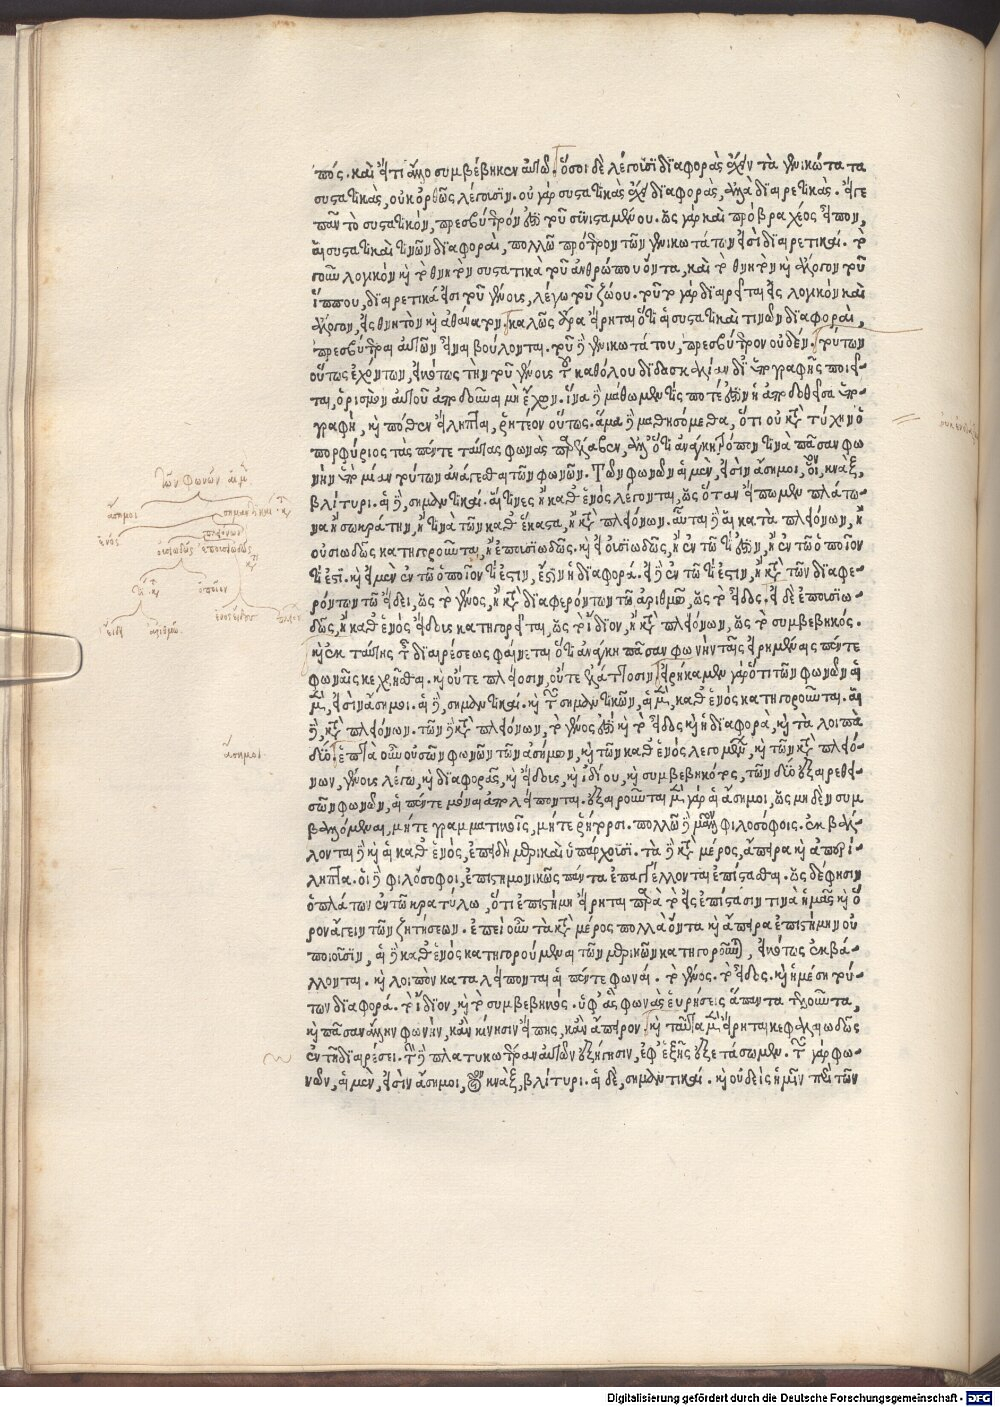 πός. καὶ εἴ τι ἄλλο συμβέβηκεν αὐτῷ. ὅσοι δὲ λέγουσι διαφορὰς ἔχειν τὰ γενικώτατα
συστατικὰς, οὐκ ὀρθῶς λέγουσιν. οὐ γὰρ συστατικὰς ἔχει διαφορὰς, ἀλλὰ διαιρετικάς. εἴγε
πᾶν τὸ συστατικὸν, πρεσβύτερόν ἐστι τοῦ συνισταμένου. ὡς γὰρ καὶ πρὸ βραχέος εἴπον,
αἱ συστατικαὶ τινῶν διαφοραὶ, πολλῷ πρότερον τῶν γενικωτάτων εἰσὶ διαιρετικαί. τὸ
γοῦν λογικὸν καὶ τὸ θνητὸν συστατικὰ τοῦ ἀνθρώπου ὄντα, καὶ τὸ θνητὸν καὶ ἄλογον τοῦ
ἵππου, διαιρετικά εἰσι τοῦ γένους, λέγω τοῦ ζώου. τοῦτο γὰρ διαιρεῖται εἰς λογικὸν καὶ
ἄλογον, εἰς θνητὸν καὶ ἀθάνατον. καλῶς ἄρα εἴρηται ὅτι αἱ συστατικαὶ τινῶν διαφοραὶ,
πρεσβύτεραι αὐτῶν εἶναι βούλονται. τοῦ δὲ γενικωτάτου, πρεσβύτερον οὐδέν. τούτων
οὕτως ἐχόντων, εἰκότως τὴν τοῦ γένους τοῦ καθόλου διδασκαλίαν δι' ὑπογραφῆς ποιεῖ-
ται, ὁρισμὸν αὐτοῦ ἀποδοῦναι μὴ ἔχων. ἵνα δὲ μάθωμεν τίς ποτέ ἐστιν ἡ ἀποδοθεῖσα ὑπο-
γραφὴ, καὶ πόθεν εἴληπται, ῥητέον οὕτως. ἅμα δὲ μαθησόμεθα, ὅτι οὐ κατὰ τύχην ὁ
πορφύριος τὰς πέντε ταύτας φωνὰς παρέλαβεν, ἀλλ' ὅτι ἀνάγκη τρόπον τινὰ πᾶσαν φω
νὴν ὑπὸ μίαν τούτων ἀνάγεσθαι τῶν φωνῶν. Τῶν φωνῶν αἱ μὲν, εἰσὶν ἄσημοι, οἷον, κνὰξ,
βλίτυρι. αἱ δὲ, σημαντικαί. αἵτινες ἢ καθ' ἑνὸς λέγονται, ὡς ὅταν εἴπωμεν πλάτω-
να ἢ σωκράτην, ἢ τινὰ τῶν καθ' ἕκαστα, ἢ κατὰ πλειόνων. αὗται δὲ αἱ κατὰ πλειόνων, ἢ
οὐσιωδῶς κατηγοροῦνται, ἢ ἐπουσιωδῶς. καὶ εἰ οὐσιωδῶς, ἢ ἐν τῷ τί ἐστιν, ἢ ἐν τῷ ὁποῖον
τί ἐστι. καὶ εἰ μὲν ἐν τῷ ὁποῖον τί ἐστιν, ἔστιν ἡ διαφορά. εἰ δὲ ἐν τῷ τί ἐστιν, ἢ κατὰ τῶν διαφε-
ρόντων τῷ εἴδει, ὡς τὸ γένος, ἢ κατὰ διαφερόντων τῷ ἀριθμῷ, ὡς τὸ εἶδος. εἰ δὲ ἐπουσιω-
δῶς, ἢ καθ' ἑνὸς εἴδους κατηγορεῖται, ὡς τὸ ἴδιον, ἢ κατὰ πλειόνων, ὡς τὸ συμβεβηκός.
καὶ ἐκ ταύτης τῆς διαιρέσεως φαίνεται ὅτι ἀνάγκη πᾶσαν φωνὴν ταῖς εἰρημέναις πέντε
φωναῖς κεχρῆσθαι. καὶ οὔτε πλείοσιν, οὔτε ἐλάττοσιν. εἰρήκαμεν γὰρ ὅτι τῶν φωνῶν αἱ
μὲν, εἰσὶν ἄσημοι. αἱ δὲ, σημαντικαί. καὶ τῶν σημαντικῶν, αἱ μὲν, καθ' ἑνὸς κατηγοροῦνται. αἱ
δὲ, κατὰ πλειόνων. τῶν δὲ κατὰ πλειόνων, τὸ γένος ἐστὶ καὶ τὸ εἶδος καὶ ἡ διαφορὰ, καὶ τὰ λοιπὰ
δύο. ἑπτὰ οὖν οὐσῶν φωνῶν τῶν ἀσήμων, καὶ τῶν καθ' ἑνὸς λεγομένων, καὶ τῶν κατὰ πλειό-
νων, γένους λέγω, καὶ διαφορᾶς, καὶ εἴδους, καὶ ἰδίου, καὶ συμβεβηκότος, τῶν δύο ἐξαιρεθει-
σῶν φωνῶν, αἱ πέντε μόναι ἀπολείπονται. ἐξαιροῦνται μὲν γὰρ αἱ ἄσημοι, ὡς μηδὲν συμ
βαλλόμεναι, μήτε γραμματικοῖς, μήτε ῥήτορσι. πολλῷ δὲ μᾶλλον φιλοσόφοις. ἐκβάλ-
λονται δὲ καὶ αἱ καθ' ἑνὸς, ἐπειδὴ μερικαὶ ὑπάρχουσι. τὰ δὲ κατὰ μέρος, ἄπειρα καὶ ἀπερί-
ληπτα. οἱ δὲ φιλόσοφοι, ἐπιστημονικῶς πάντα ἐπαγγέλλονται ἐπίστασθαι. ὡς δέ φησιν
ὁ πλάτων ἐν τῷ κρατύλῳ, ὅτι ἐπιστήμη εἴρηται παρὰ τὸ εἰς ἐπίστασίν τινα ἡμᾶς καὶ ὅ
ρον ἄγειν τῶν ζητήσεων. ἐπεὶ οὖν τὰ κατὰ μέρος πολλὰ ὄντα καὶ ἄπειρα ἐπιστήμην οὐ
ποιοῦσιν, αἱ δὲ καθ' ἑνὸς κατηγορούμεναι τῶν μερικῶν κατηγοροῦνται, εἰκότως ἐκβά-
λλονται. καὶ λοιπὸν καταλείπονται αἱ πέντε φωναί. τὸ γένος. τὸ εἶδος. καὶ ἡ μέση τού-
των διαφορά. τὸ ἴδιον, καὶ τὸ συμβεβηκός. ὑφ' ἃς φωνὰς εὑρήσεις ἅπαντα τελοῦντα,
καὶ πᾶσαν ἄλλην φωνὴν, κἂν κίνησιν εἴπῃς, κἂν ἄπειρον. καὶ ταῦτα μὲν εἴρηται κεφαλαιωδῶς
ἐν τῇ διαιρέσει. τὴν δὲ πλατυκωτέραν αὐτῶν ἐξήγησιν, ἐφεξῆς ἐξετάσωμεν. τῶν γὰρ φω-
νῶν, αἱ μὲν, εἰσὶν ἄσημοι, οἷον κνὰξ, βλίτυρι. αἱ δὲ, σημαντικαί. καὶ οὐδεὶς ἡμῖν περὶ τῶν
τῶν φωνῶν αἱ μὲν
ἄσημοι
σημαντικαί
ἑνός
οὐσιωδῶς
ἐπουσιωδῶς
ὁποῖον
εἴδη
ἀριθμῷ
ἑνὸς εἴδους
ἄσημοι
Digitalisierung gefördert durch die Deutsche Forschungsgemeinschaft - DFG